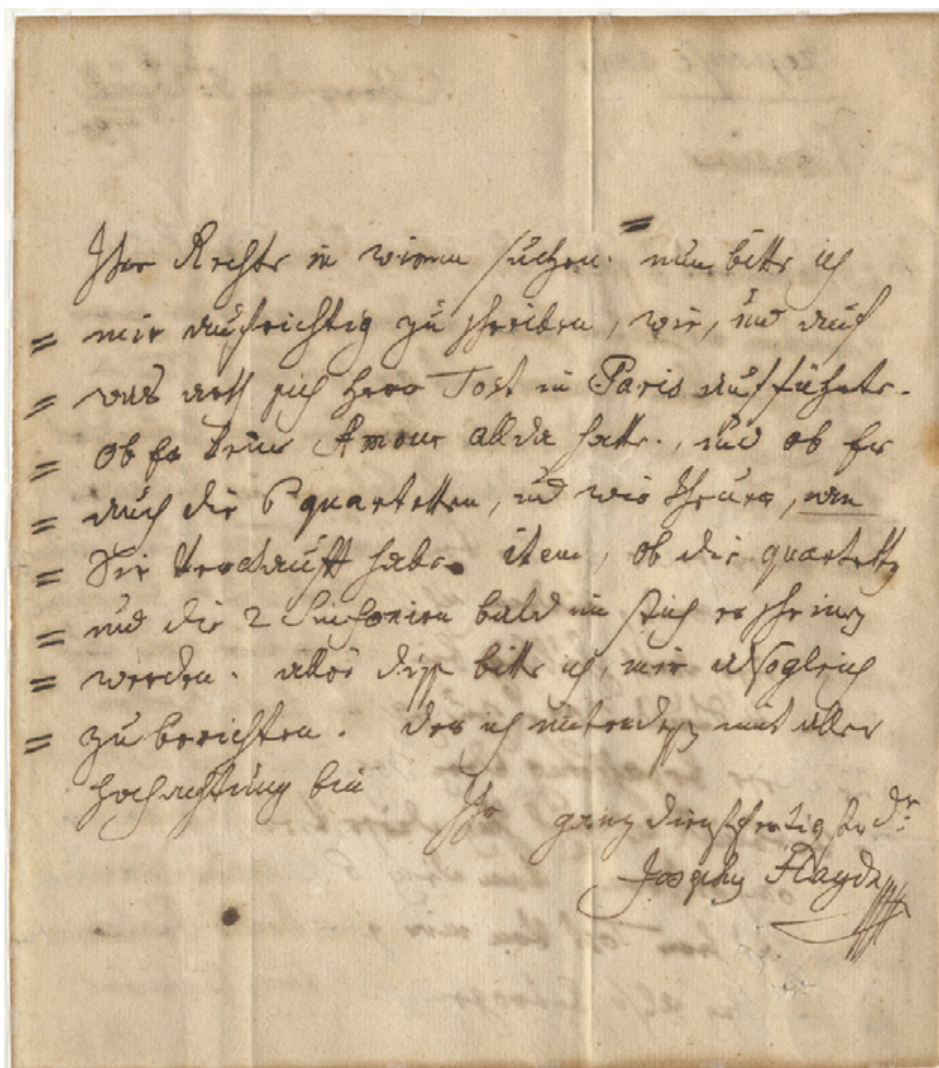 Ihre Rechte in wienn suchen. nun bitte ich
= mir aufrichtig zu schreiben, wie, und auf
= was arth sich Herr Tost in Paris aufführte.
= ob Er keine Amour allda hatte., und ob Er
= auch die 6 quartetten, und wie theuer,
= Sie verkaufft habe. item, ob die quartetten
= und die 2 Sinfonien bald im stich erscheinen
= werden. alles diss bitte ich, mir alsogleich
= zu berichten. der ich unterdess mit aller
hochachtung bin
Ihr ganz dienstfertigster Dr:
Josephus Haydn